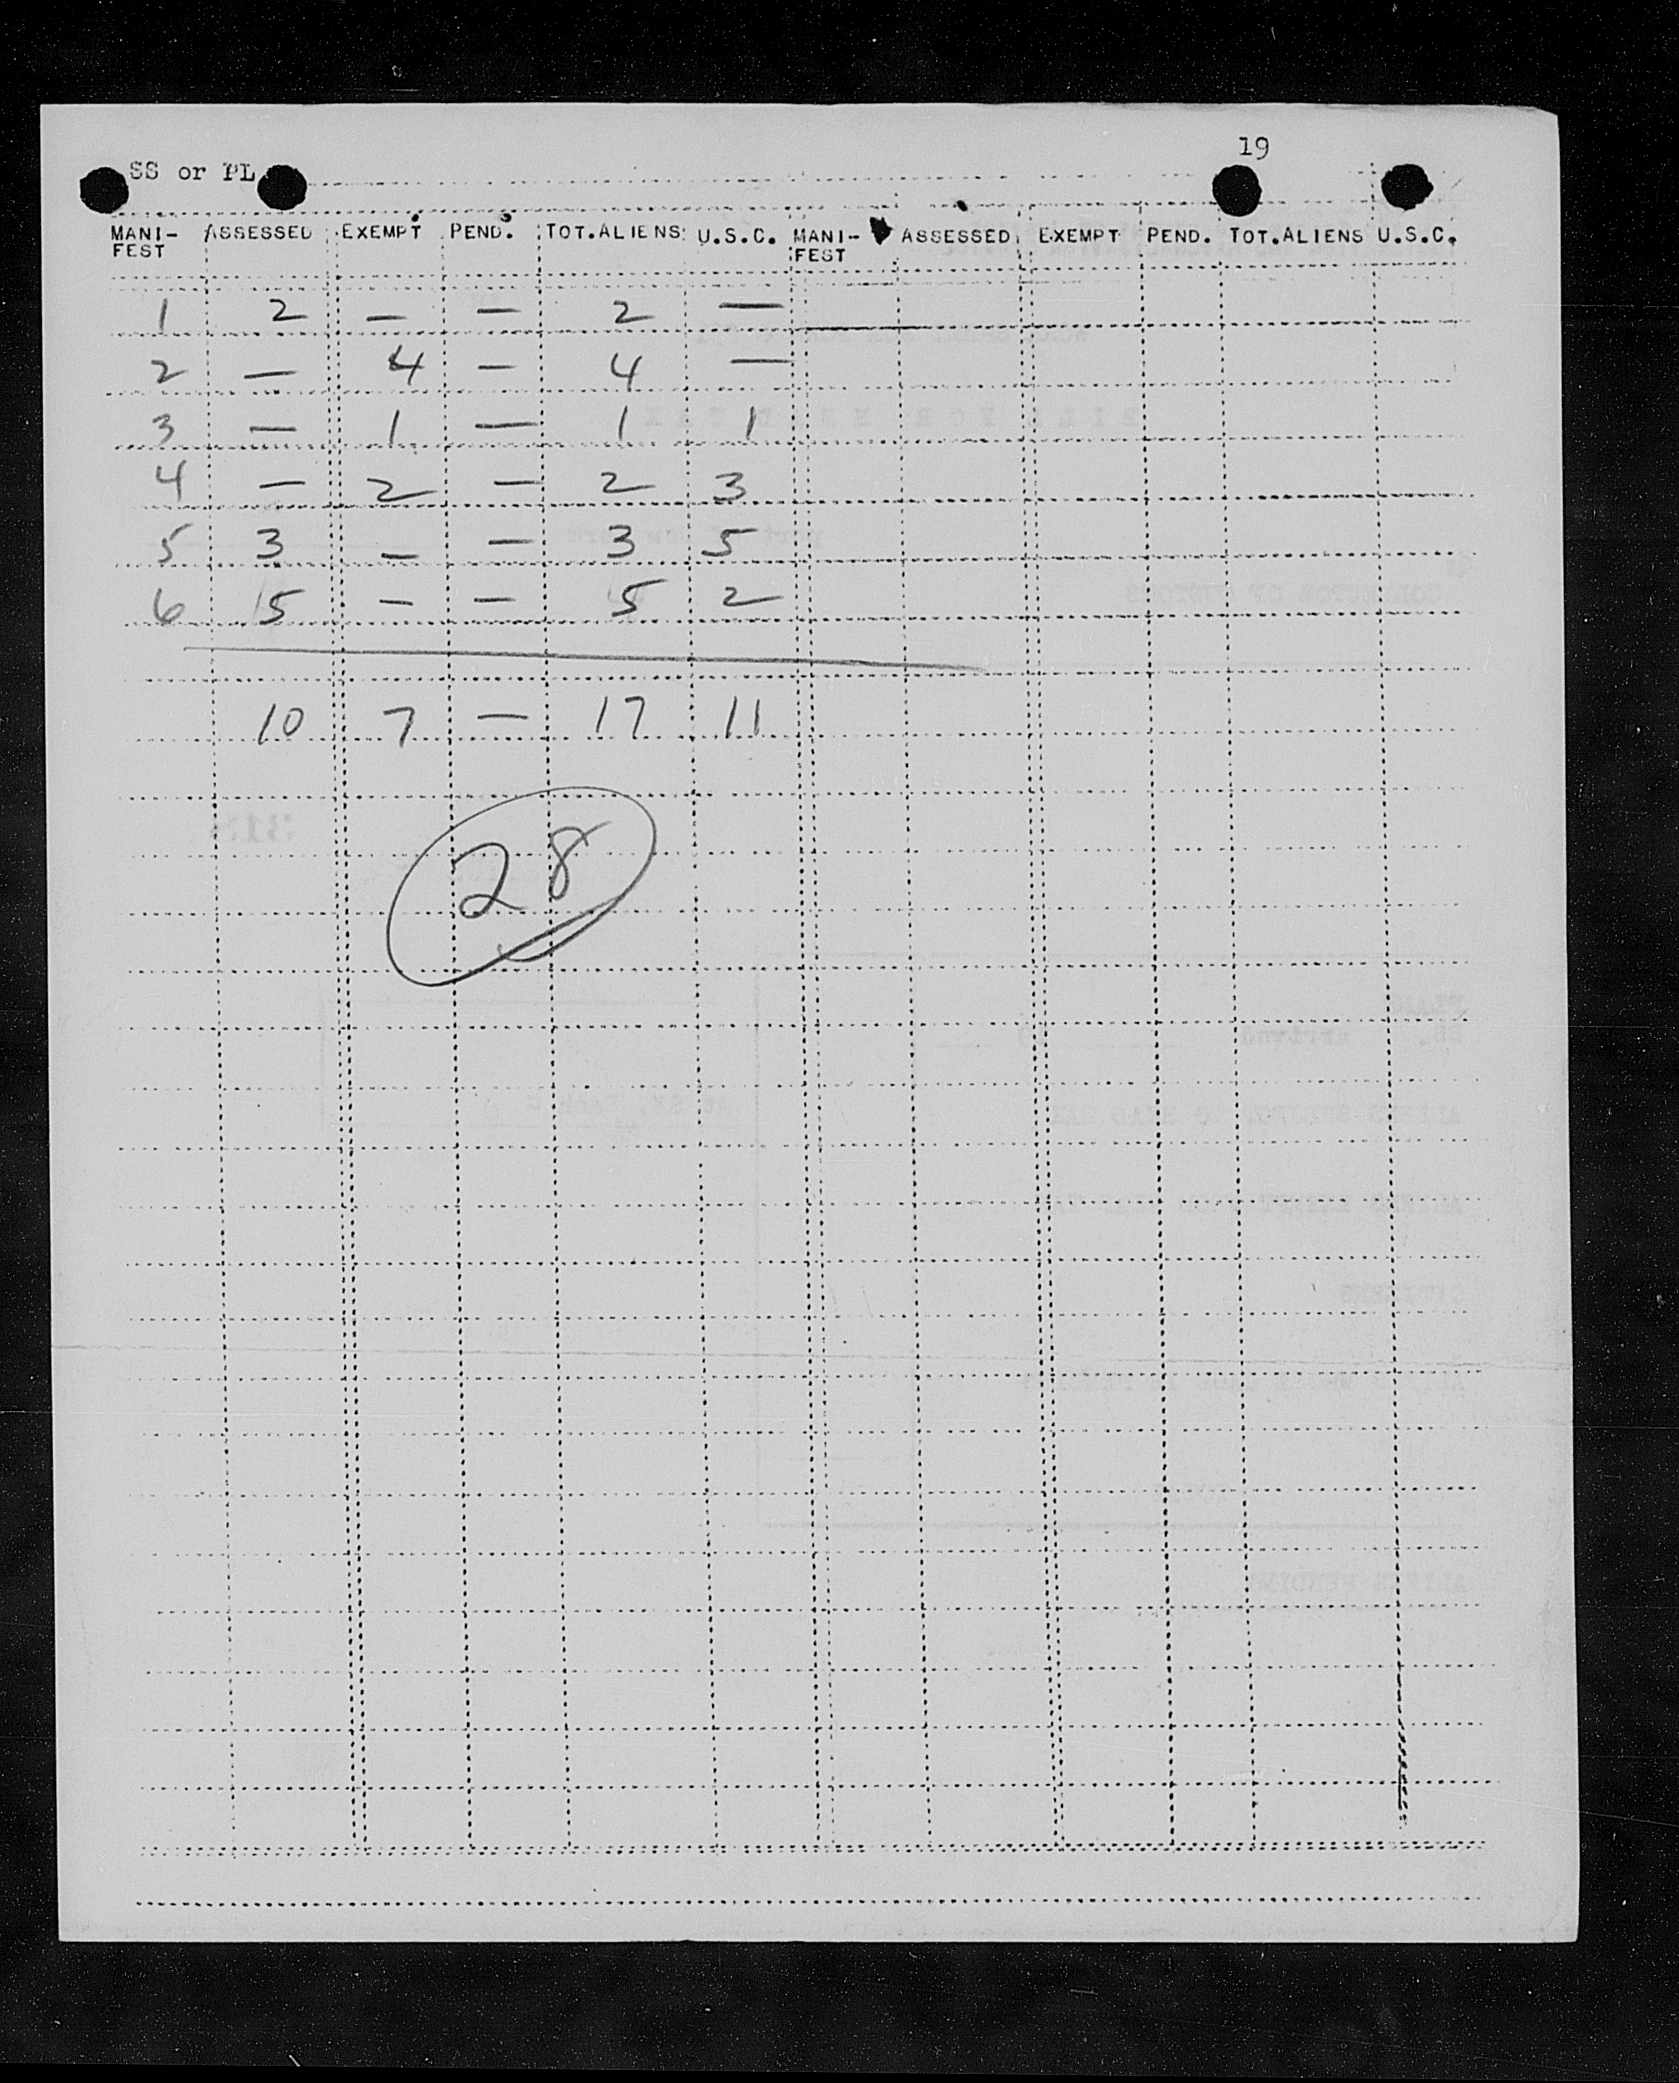 19
SS or PL
MANI-FEST ASSESSED EXEMPT PEND. TOT.ALIENS U.S.C. MANI-FEST ASSESSED EXEMPT PEND. TOT.ALIENS U.S.C.
1 2 — — 2 —
2 — 4 — 4 —
3 — 1 — 1 1
4 — 2 — 2 3
5 3 — — 3 5
6 5 — — 5 2
10 7 — 17 11
28